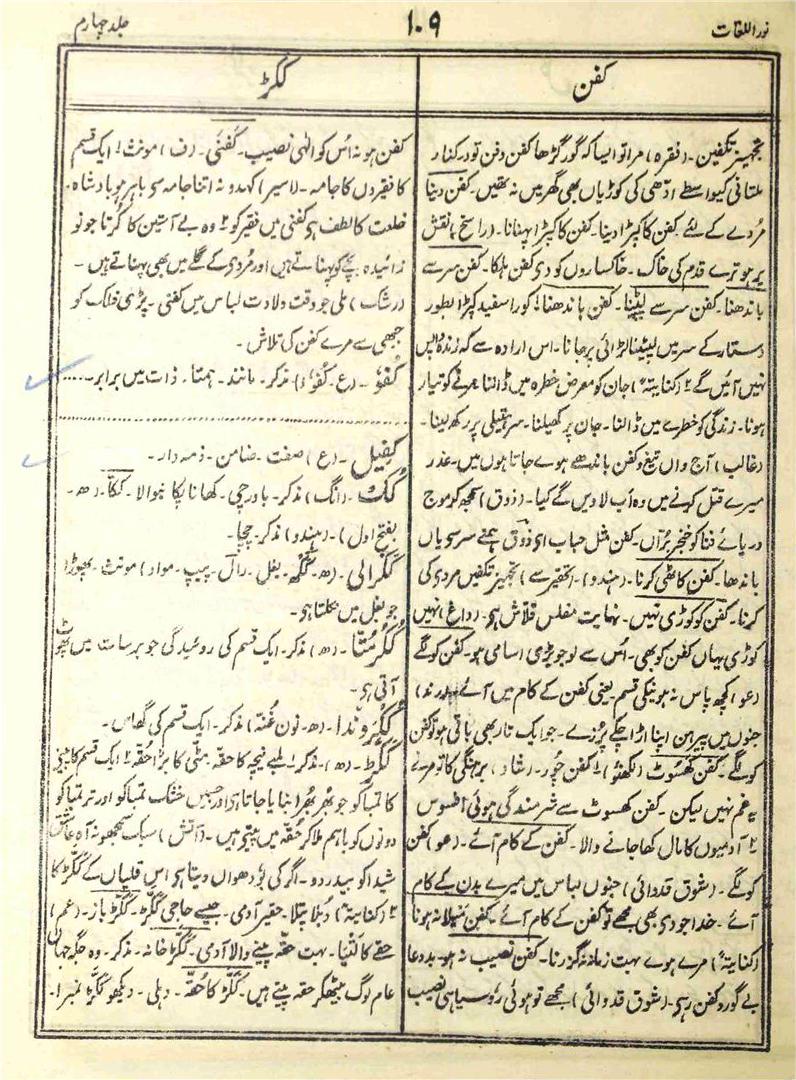 نور اللغات
۱۰۹
جلد چہارم
کفن
ککڑ
تجہیز تکفین۔ (فقرہ) مرا تو ایسا کہ گور گڑھا کفن دفن تو درکنار
ملتانی کیواسطے ادھی کی کوڑیاں بھی گھر میں نہ تھیں۔ کفن دینا
مُردے کے لئے کفن کا کپڑا دینا۔ کفن کا کپڑا پہنانا۔ (راسخ) نقش
ترے قدم کی خاک۔ خاکساروں کو دی کفن ہلکا۔ کفن سر سے
باندھنا۔ کفن سر سے لپٹنا۔ کفن باندھنا! کورا سفید کپڑا بطور
دستار کے سر میں لپیٹنا لڑائی پر جانا۔ اس ارادہ سے کہ زندہ واپس
نہیں آئیں گے ۲ (کنایتہً) جان کو معرض خطرہ میں ڈالنا مرنے کو تیار
ہونا۔ زندگی کو خطرے میں ڈالنا۔ جان پر کھیلنا۔ سر ہتیلی پر رکھ لینا۔
(غالب) آج واں تیغ و کفن باندھے ہوے جاتا ہوں میں۔ عذر
میرے قتل کرنے میں وہ اب لاویں گے کیا۔ (ذوق) سمجھ کو موج
دریائے فنا کو خنجر بُرّاں۔ کفن مثل حباب ای ذوق ہمنے سر سو یاں
باندھا۔ کفن کاٹھی کرنا۔ (ہندو)۔ (تحقیر سے) تجہیز تکفین مردی کی
کرنا۔ کفن کو کوڑی نہیں۔ نہایت مفلس قلاش ہی۔ (داغ) نہیں
کوڑی یہاں کفن کو بھی۔ اُس سے لو جو بڑی اسامی ہو۔ کفن کو لگے
(عو) کچھ پاس نہ ہونیکی قسم یعنی کفن کے کام میں آئے (رند)
جنوں میں پیرہن اپنا اڑا چکے پرزے۔ جو ایک تار بھی باقی ہو تو کفن
کو لگے۔ کفن کھسوٹ (لکھنؤ) ! کفن چور۔ (شاد) برہنگی کا تو مرنے
پہ غم نہیں لیکن۔ کفن کھسوٹ سے شرمندگی ہوئی افسوس
۲ آدمیوں کا مال کھا جانے والا۔ کفن کے کام آئے۔ (عو) کفن
کو لگے۔ (شوق قدوائی) جنوں لباس میں میرے بدن کے کام
آئے۔ خدا جو دی بھی مجھے تو کفن کے کام آئے۔ کفن میلا نہ ہونا
(کنایتہً) مرے ہوے بہت زمانہ نہ گزرنا۔ کفن نصیب نہ ہو۔ بددعا
بے گور و کفن رہی۔ (شوق قدوائی) مجھے تو ہوئی رُوسیاہی نصیب
کفن ہو نہ اُس کو الٰہی نصیب۔ کَفَنی۔ (ف) مونث! ایک قسم
کا فقیروں کا جامہ۔ (اسیر) کہدو نہ اتنا جامہ سی باہر ہو بادشاہ۔
خلعت کا لطف ہی کفنی میں فقیر کو ۲ وہ بے آستین کا کُرتا جو نو
زائیدہ بچے کو پہناتے ہیں اور مُردی کے گلے میں بھی پہناتے ہیں۔
(رشک) ملی جو وقت ولادت لباس میں کفنی۔ پڑی فلک کو
جبھی سے مرے کفن کی تلاش۔
کُفو۔ (ع۔ کُفُوًا) مذکر۔ مانند۔ ہمتا۔ ذات میں برابر۔.....
کَفیل۔ (ع) صفت۔ ضامن۔ ذمہ دار۔
کُک۔ (انگ) مذکر۔ باورچی۔ کھانا پکانیوالا۔ کَکّا۔ (ھ۔
بفتح اول)۔ (ہندو) مذکر۔ چچا۔
کَکرالی (ھ۔ کَکھ۔ بغل۔ رال۔ پیپ۔ مواد) مونث۔ پھوڑا
جو بغل میں نکلتا ہو۔
کُکُرمُتّا۔ (ھ) مذکر۔ ایک قسم کی روئیدگی جو برسات میں پھوٹ
آتی ہو۔
کُکَروندا۔ (ھ۔ نون غُنّہ) مذکر۔ ایک قسم کی گھاس۔
کَکَّڑ۔ (ھ)۔ مذکر! لمبے نیچہ کا حقہ۔ مٹی کا بڑا حُقہ ۲ ایک قسم کا پینے
کا تمباکو جو بُھربُھرا بنایا جاتا ہی اور جسمیں خشک تمباکو اور تر تمباکو
دونوں کو باہم ملا کر حُقہ میں پیتے ہیں۔ (آتش) سبک سمجھو نہ آہ عاشق
شیدا کو بیدردو۔ اگر کی بو دھواں دیتا ہی اس قلیاں کے ککڑ کا
۳ (کنایتہً) دُبلا پتلا۔ حقیر آدمی۔ جیسے حاجی ککڑ۔ ککڑ باز۔ (عم)
حقے کا لتیا۔ بہت حقہ پینے والا آدمی۔ ککڑ خانہ۔ مذکر۔ وہ جگہ جہاں
عام لوگ بیٹھ کر حقہ پیتے ہیں۔ ککڑ کا حُقہ۔ دہلی۔ دیکھو ککڑ نمبر ۱۔